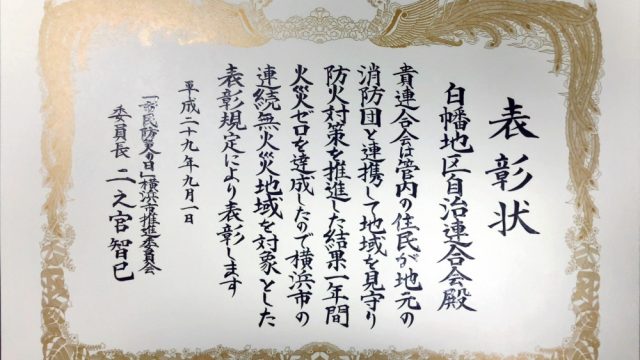 表彰状
白幡地区自治連合会殿
貴連合会は管内の住民が地元の
消防団と連携して地域を見守り
防火対策を推進した結果一年間
火災ゼロを達成したので横浜市の
連続無火災地域を対象とした
表彰規定により表彰します
平成二十九年九月一日
「市民防災の日」横浜市推進委員会
委員長 二之宮智巳